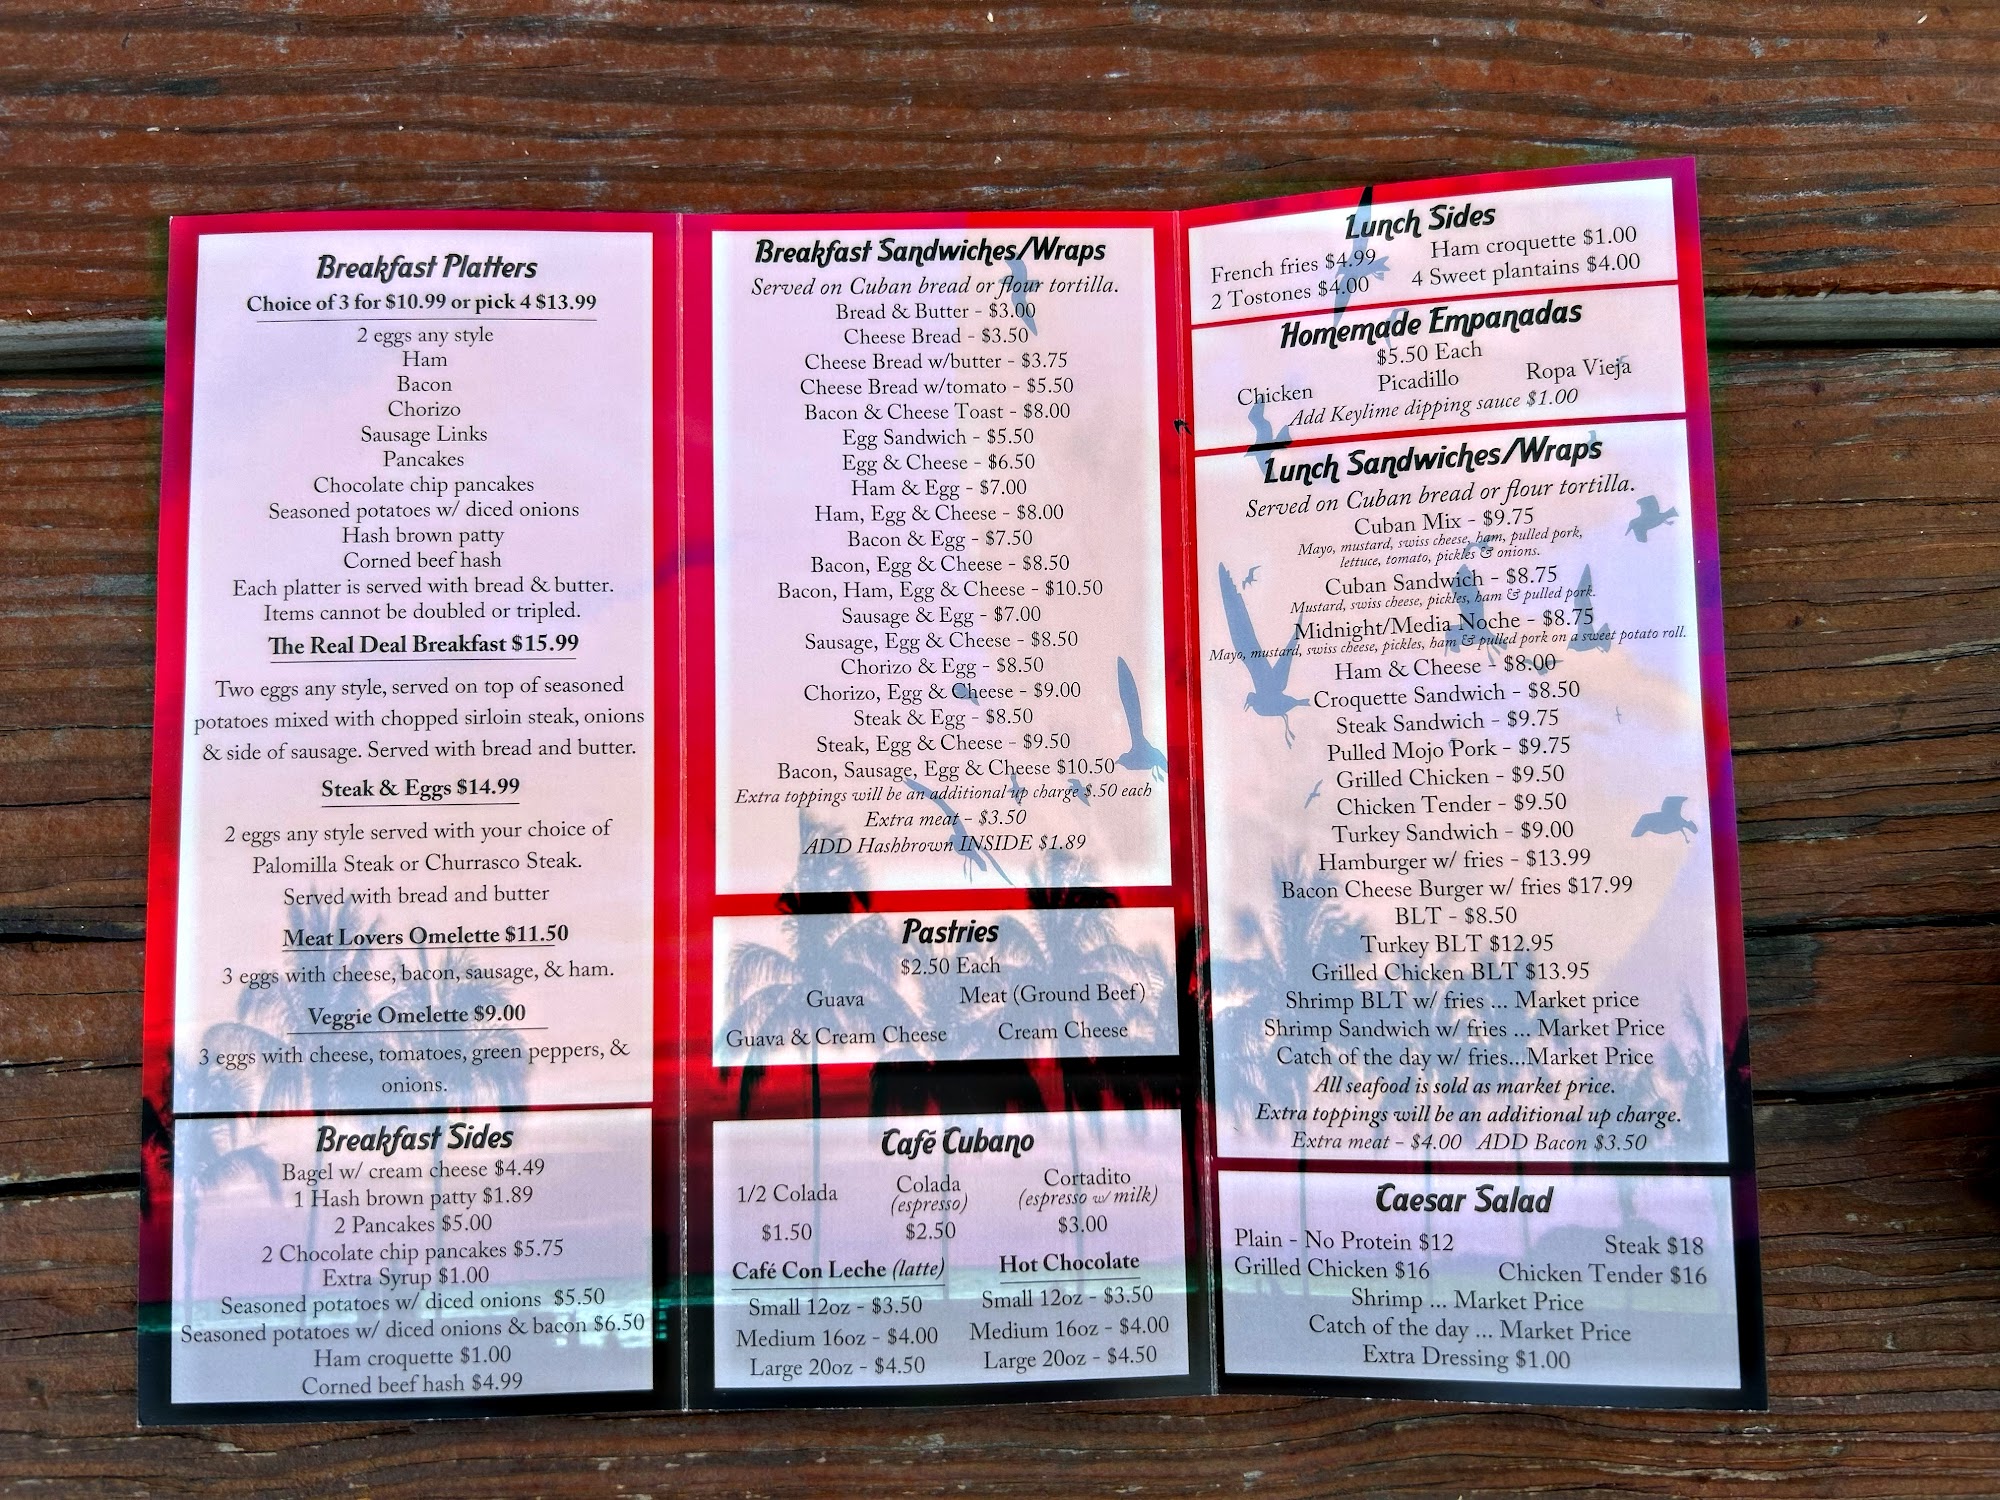 Breakfast Platters
Choice of 3 for $10.99 or pick 4 $13.99
2 eggs any style
Ham
Bacon
Chorizo
Sausage Links
Pancakes
Chocolate chip pancakes
Seasoned potatoes w/ diced onions
Hash brown patty
Corned beef hash
Each platter is served with bread & butter.
Items cannot be doubled or tripled.
The Real Deal Breakfast $15.99
Two eggs any style, served on top of seasoned
potatoes mixed with chopped sirloin steak, onions
& side of sausage. Served with bread and butter.
Steak & Eggs $14.99
2 eggs any style served with your choice of
Palomilla Steak or Churrasco Steak.
Served with bread and butter
Meat Lovers Omelette $11.50
3 eggs with cheese, bacon, sausage, & ham.
Veggie Omelette $9.00
3 eggs with cheese, tomatoes, green peppers, &
onions.
Breakfast Sides
Bagel w/ cream cheese $4.49
1 Hash brown patty $1.89
2 Pancakes $5.00
2 Chocolate chip pancakes $5.75
Extra Syrup $1.00
Seasoned potatoes w/ diced onions $5.50
Seasoned potatoes w/ diced onions & bacon $6.50
Ham croquette $1.00
Corned beef hash $4.99
Breakfast Sandwiches/Wraps
Served on Cuban bread or flour tortilla.
Bread & Butter - $3.00
Cheese Bread - $3.50
Cheese Bread w/butter - $3.75
Cheese Bread w/tomato - $5.50
Bacon & Cheese Toast - $8.00
Egg Sandwich - $5.50
Egg & Cheese - $6.50
Ham & Egg - $7.00
Ham, Egg & Cheese - $8.00
Bacon & Egg - $7.50
Bacon, Egg & Cheese - $8.50
Bacon, Ham, Egg & Cheese - $10.50
Sausage & Egg - $7.00
Sausage, Egg & Cheese - $8.50
Chorizo & Egg - $8.50
Chorizo, Egg & Cheese - $9.00
Steak & Egg - $8.50
Steak, Egg & Cheese - $9.50
Bacon, Sausage, Egg & Cheese $10.50
Extra toppings will be an additional up charge $.50 each
Extra meat - $3.50
ADD Hashbrown INSIDE $1.89
Pastries
$2.50 Each
Guava Meat (Ground Beef)
Guava & Cream Cheese Cream Cheese
Café Cubano
1/2 Colada Colada Cortadito
(espresso) (espresso w/ milk)
$1.50 $2.50 $3.00
Café Con Leche (latte) Hot Chocolate
Small 12oz - $3.50 Small 12oz - $3.50
Medium 16oz - $4.00 Medium 16oz - $4.00
Large 20oz - $4.50 Large 20oz - $4.50
Lunch Sides
French fries $4.99 Ham croquette $1.00
2 Tostones $4.00 4 Sweet plantains $4.00
Homemade Empanadas
$5.50 Each
Chicken Picadillo Ropa Vieja
Add Keylime dipping sauce $1.00
Lunch Sandwiches/Wraps
Served on Cuban bread or flour tortilla.
Cuban Mix - $9.75
Mayo, mustard, swiss cheese, ham, pulled pork,
lettuce, tomato, pickles & onions.
Cuban Sandwich - $8.75
Mustard, swiss cheese, pickles, ham & pulled pork.
Midnight/Media Noche - $8.75
Mayo, mustard, swiss cheese, pickles, ham & pulled pork on a sweet potato roll.
Ham & Cheese - $8.00
Croquette Sandwich - $8.50
Steak Sandwich - $9.75
Pulled Mojo Pork - $9.75
Grilled Chicken - $9.50
Chicken Tender - $9.50
Turkey Sandwich - $9.00
Hamburger w/ fries - $13.99
Bacon Cheese Burger w/ fries $17.99
BLT - $8.50
Turkey BLT $12.95
Grilled Chicken BLT $13.95
Shrimp BLT w/ fries ... Market price
Shrimp Sandwich w/ fries ... Market Price
Catch of the day w/ fries...Market Price
All seafood is sold as market price.
Extra toppings will be an additional up charge.
Extra meat - $4.00 ADD Bacon $3.50
Caesar Salad
Plain - No Protein $12 Steak $18
Grilled Chicken $16 Chicken Tender $16
Shrimp ... Market Price
Catch of the day ... Market Price
Extra Dressing $1.00